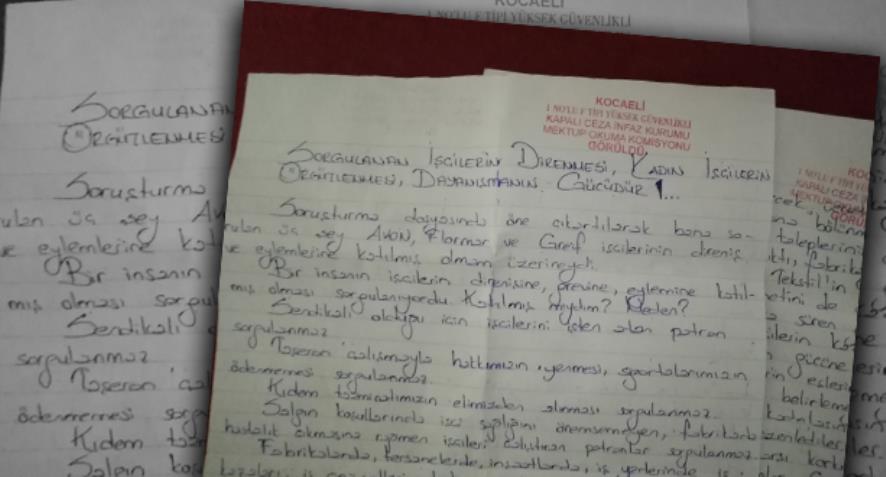 KOCAELİ
1 NO'LU F TİPİ YÜKSEK GÜVENLİKLİ
SORGULANAN
ÖRGÜTLENMESİ
Soruşturma
rulan üç şey Av
ve eylemlerine kat
Bir insanın
mış olması sorgul
Sendikalı
sorgulanmaz
Taşeron çal
ödenmemesi sorg
Kıdem tazm
Salgın koş
KOCAELİ
1 NO'LU F TİPİ YÜKSEK GÜVENLİKLİ
KAPALI CEZA İNFAZ KURUMU
MEKTUP OKUMA KOMİSYONU
GÖRÜLDÜ
SORGULANAN İŞÇİLERİN DİRENMESİ, KADIN İŞÇİLERİN
ÖRGÜTLENMESİ, DAYANIŞMANIN GÜCÜDÜR!...
Soruşturma dosyasında öne çıkartılarak bana so-
rulan üç şey Avon, Flormar ve Greif işçilerinin direniş
ve eylemlerine katılmış olmam üzerineydi.
Bir insanın işçilerin direnişine, grevine, eylemine katıl-
mış olması sorgulanıyordu. Katılmış mıydım? Neden?
Sendikalı olduğu için işçilerini işten atan patron
sorgulanmaz
Taşeron çalışmayla hakkımızın yenmesi, sigortalarımızın
ödenmemesi sorgulanmaz.
Kıdem tazminatımızın elimizden alınması sorgulanmaz.
Salgın koşullarında işçi sağlığını önemsemeyen, fabrikada
hastalık çıkmasına rağmen işçileri çalıştıran patronlar sorgulanmaz.
Fabrikalarda, tersanelerde, inşaatlarda, iş yerlerinde iş
taleplerini
fabrika
Tekstil'in